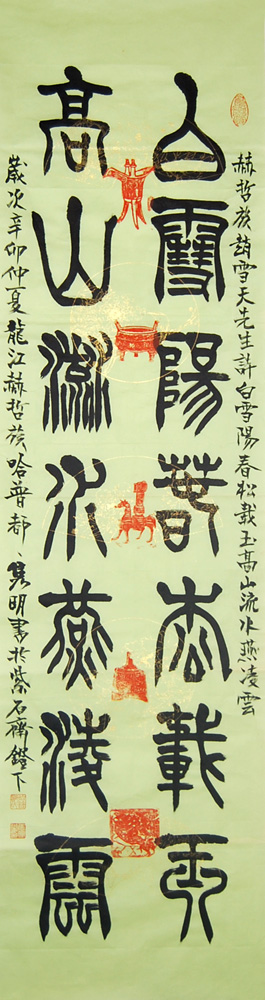 赫哲族赵雪天先生許白雪陽春松載玉高山流水燕凌雲
白雪陽春松載玉
高山流水燕凌雲
歲次辛卯仲夏龍江赫哲族哈普都、隽明書於紫石齋鐙下